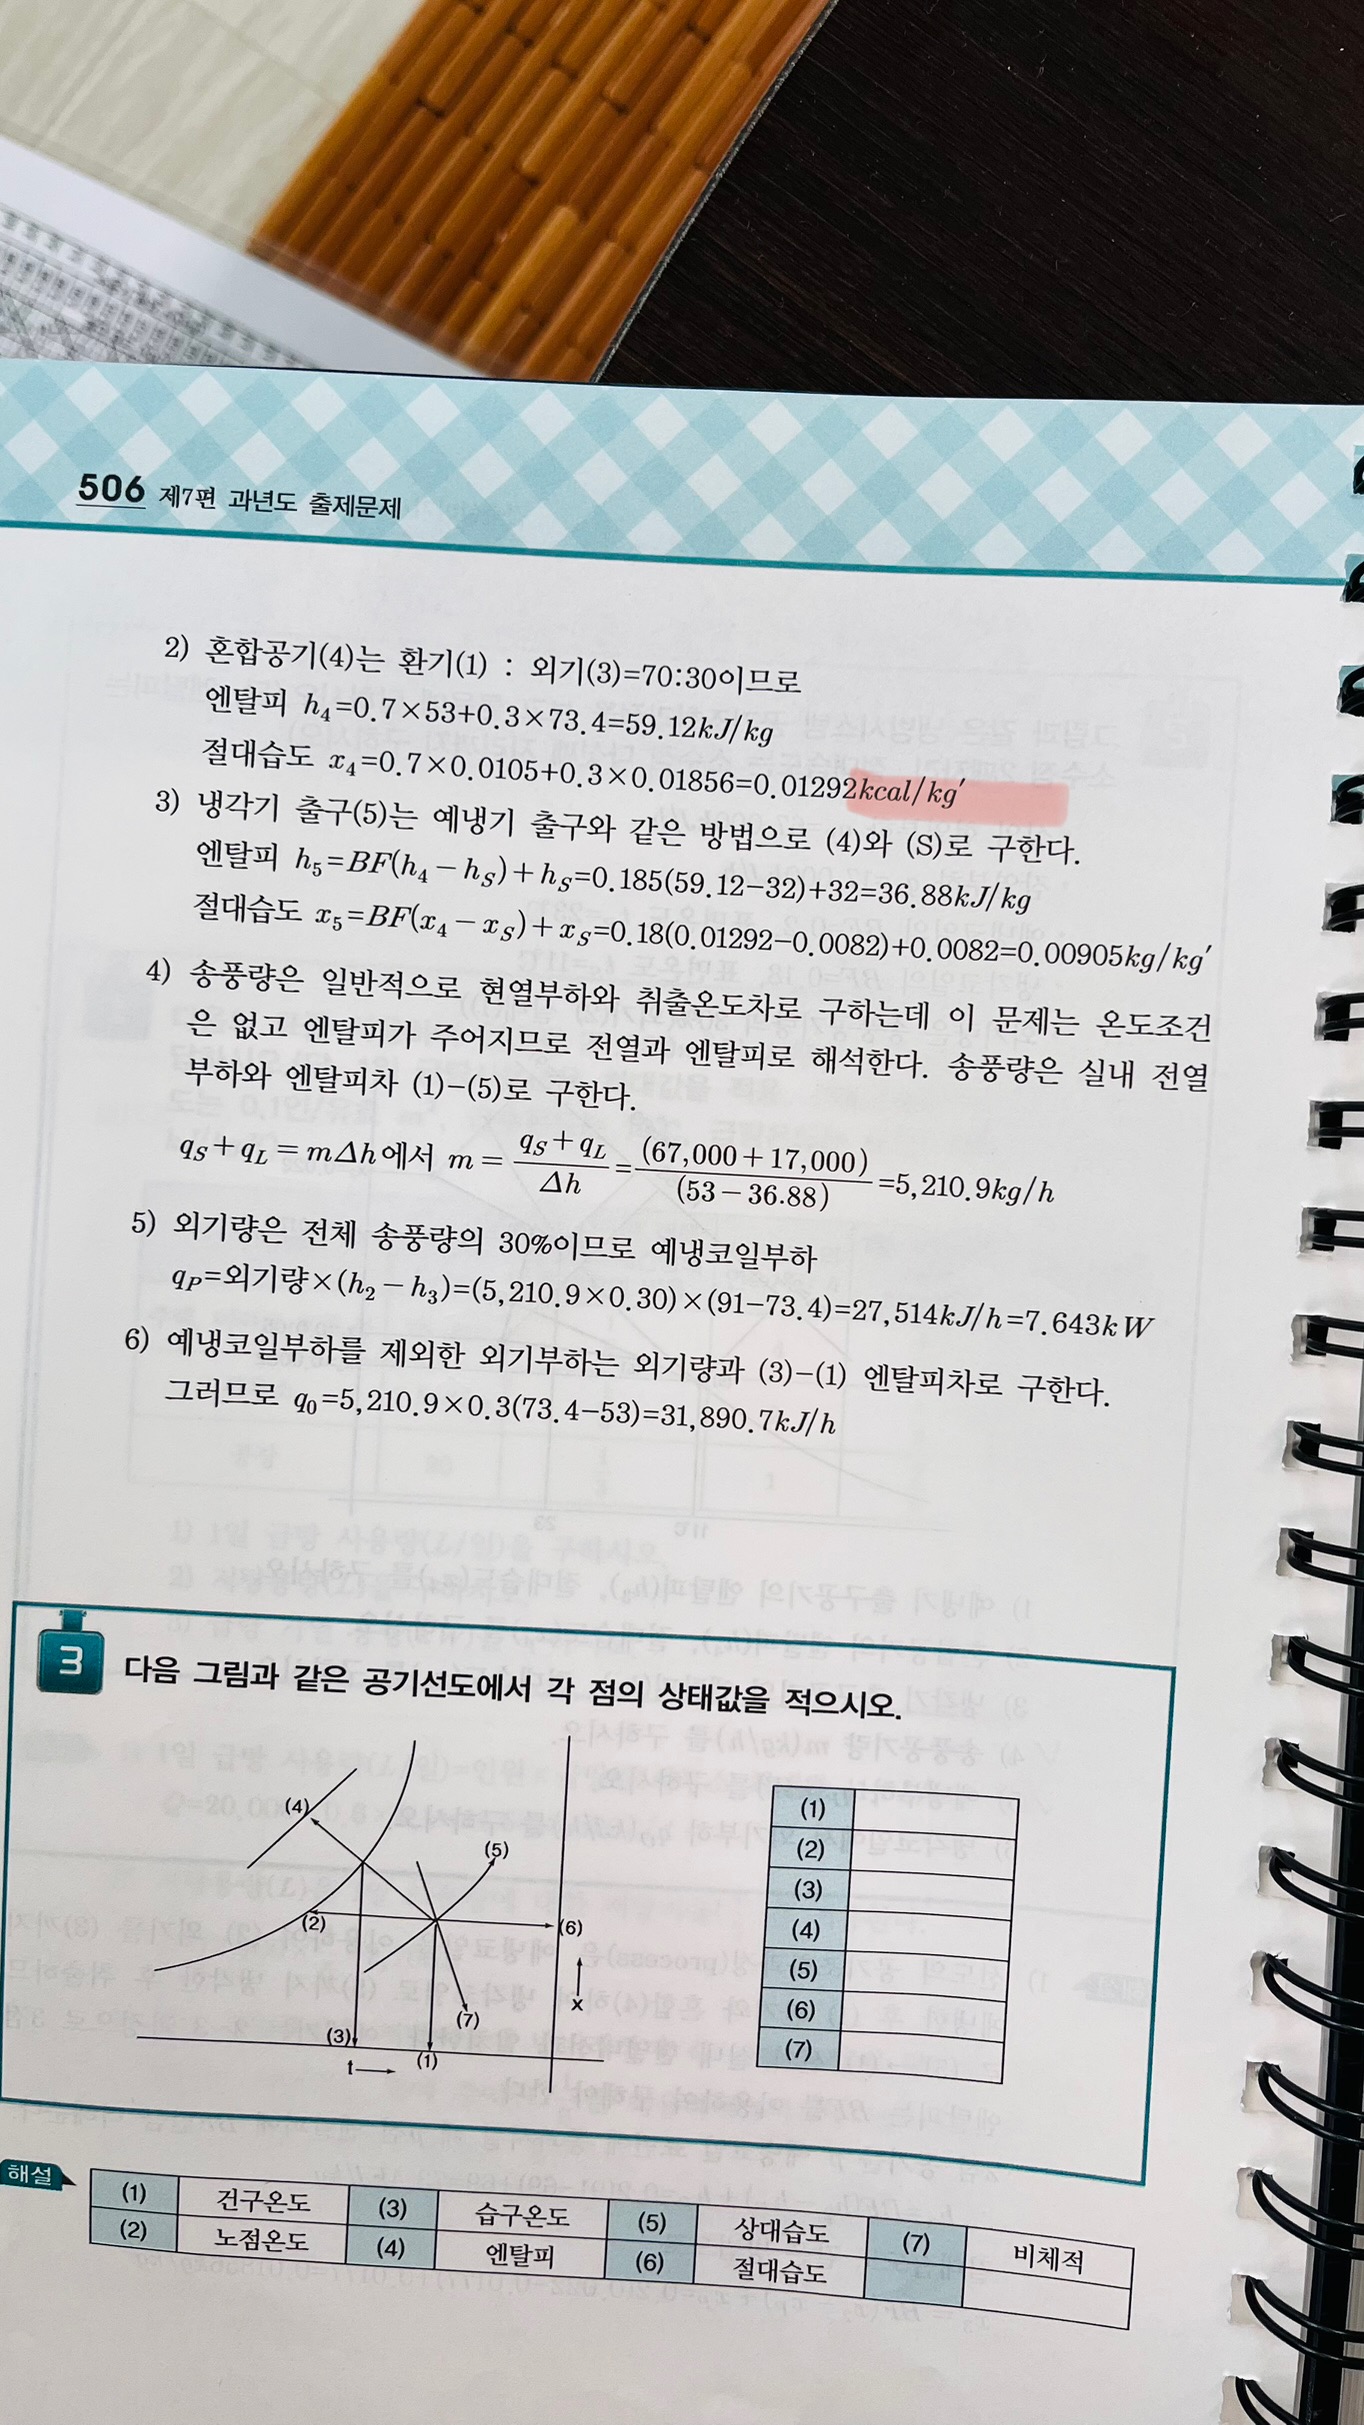 506 제7편 과년도 출제문제
2) 혼합공기(4)는 환기(1) : 외기(3)=70:30이므로
엔탈피 h₄=0.7×53+0.3×73.4=59.12kJ/kg
절대습도 x₄=0.7×0.0105+0.3×0.01856=0.01292kcal/kg′
3) 냉각기 출구(5)는 예냉기 출구와 같은 방법으로 (4)와 (S)로 구한다.
엔탈피 h₅=BF(h₄-h_S)+h_S=0.185(59.12-32)+32=36.88kJ/kg
절대습도 x₅=BF(x₄-x_S)+x_S=0.18(0.01292-0.0082)+0.0082=0.00905kg/kg′
4) 송풍량은 일반적으로 현열부하와 취출온도차로 구하는데 이 문제는 온도조건
은 없고 엔탈피가 주어지므로 전열과 엔탈피로 해석한다. 송풍량은 실내 전열
부하와 엔탈피차 (1)-(5)로 구한다.
q_S+q_L=mΔh에서 m=(q_S+q_L)/Δh=(67,000+17,000)/(53-36.88)=5,210.9kg/h
5) 외기량은 전체 송풍량의 30%이므로 예냉코일부하
q_P=외기량×(h₂-h₃)=(5,210.9×0.30)×(91-73.4)=27,514kJ/h=7.643kW
6) 예냉코일부하를 제외한 외기부하는 외기량과 (3)-(1) 엔탈피차로 구한다.
그러므로 q₀=5,210.9×0.3(73.4-53)=31,890.7kJ/h
3 다음 그림과 같은 공기선도에서 각 점의 상태값을 적으시오.
(4)
(5)
(2)
(6)
x
(7)
(3)
(1)
t
(1)
(2)
(3)
(4)
(5)
(6)
(7)
해설
(1) 건구온도 (3) 습구온도 (5) 상대습도 (7) 비체적
(2) 노점온도 (4) 엔탈피 (6) 절대습도